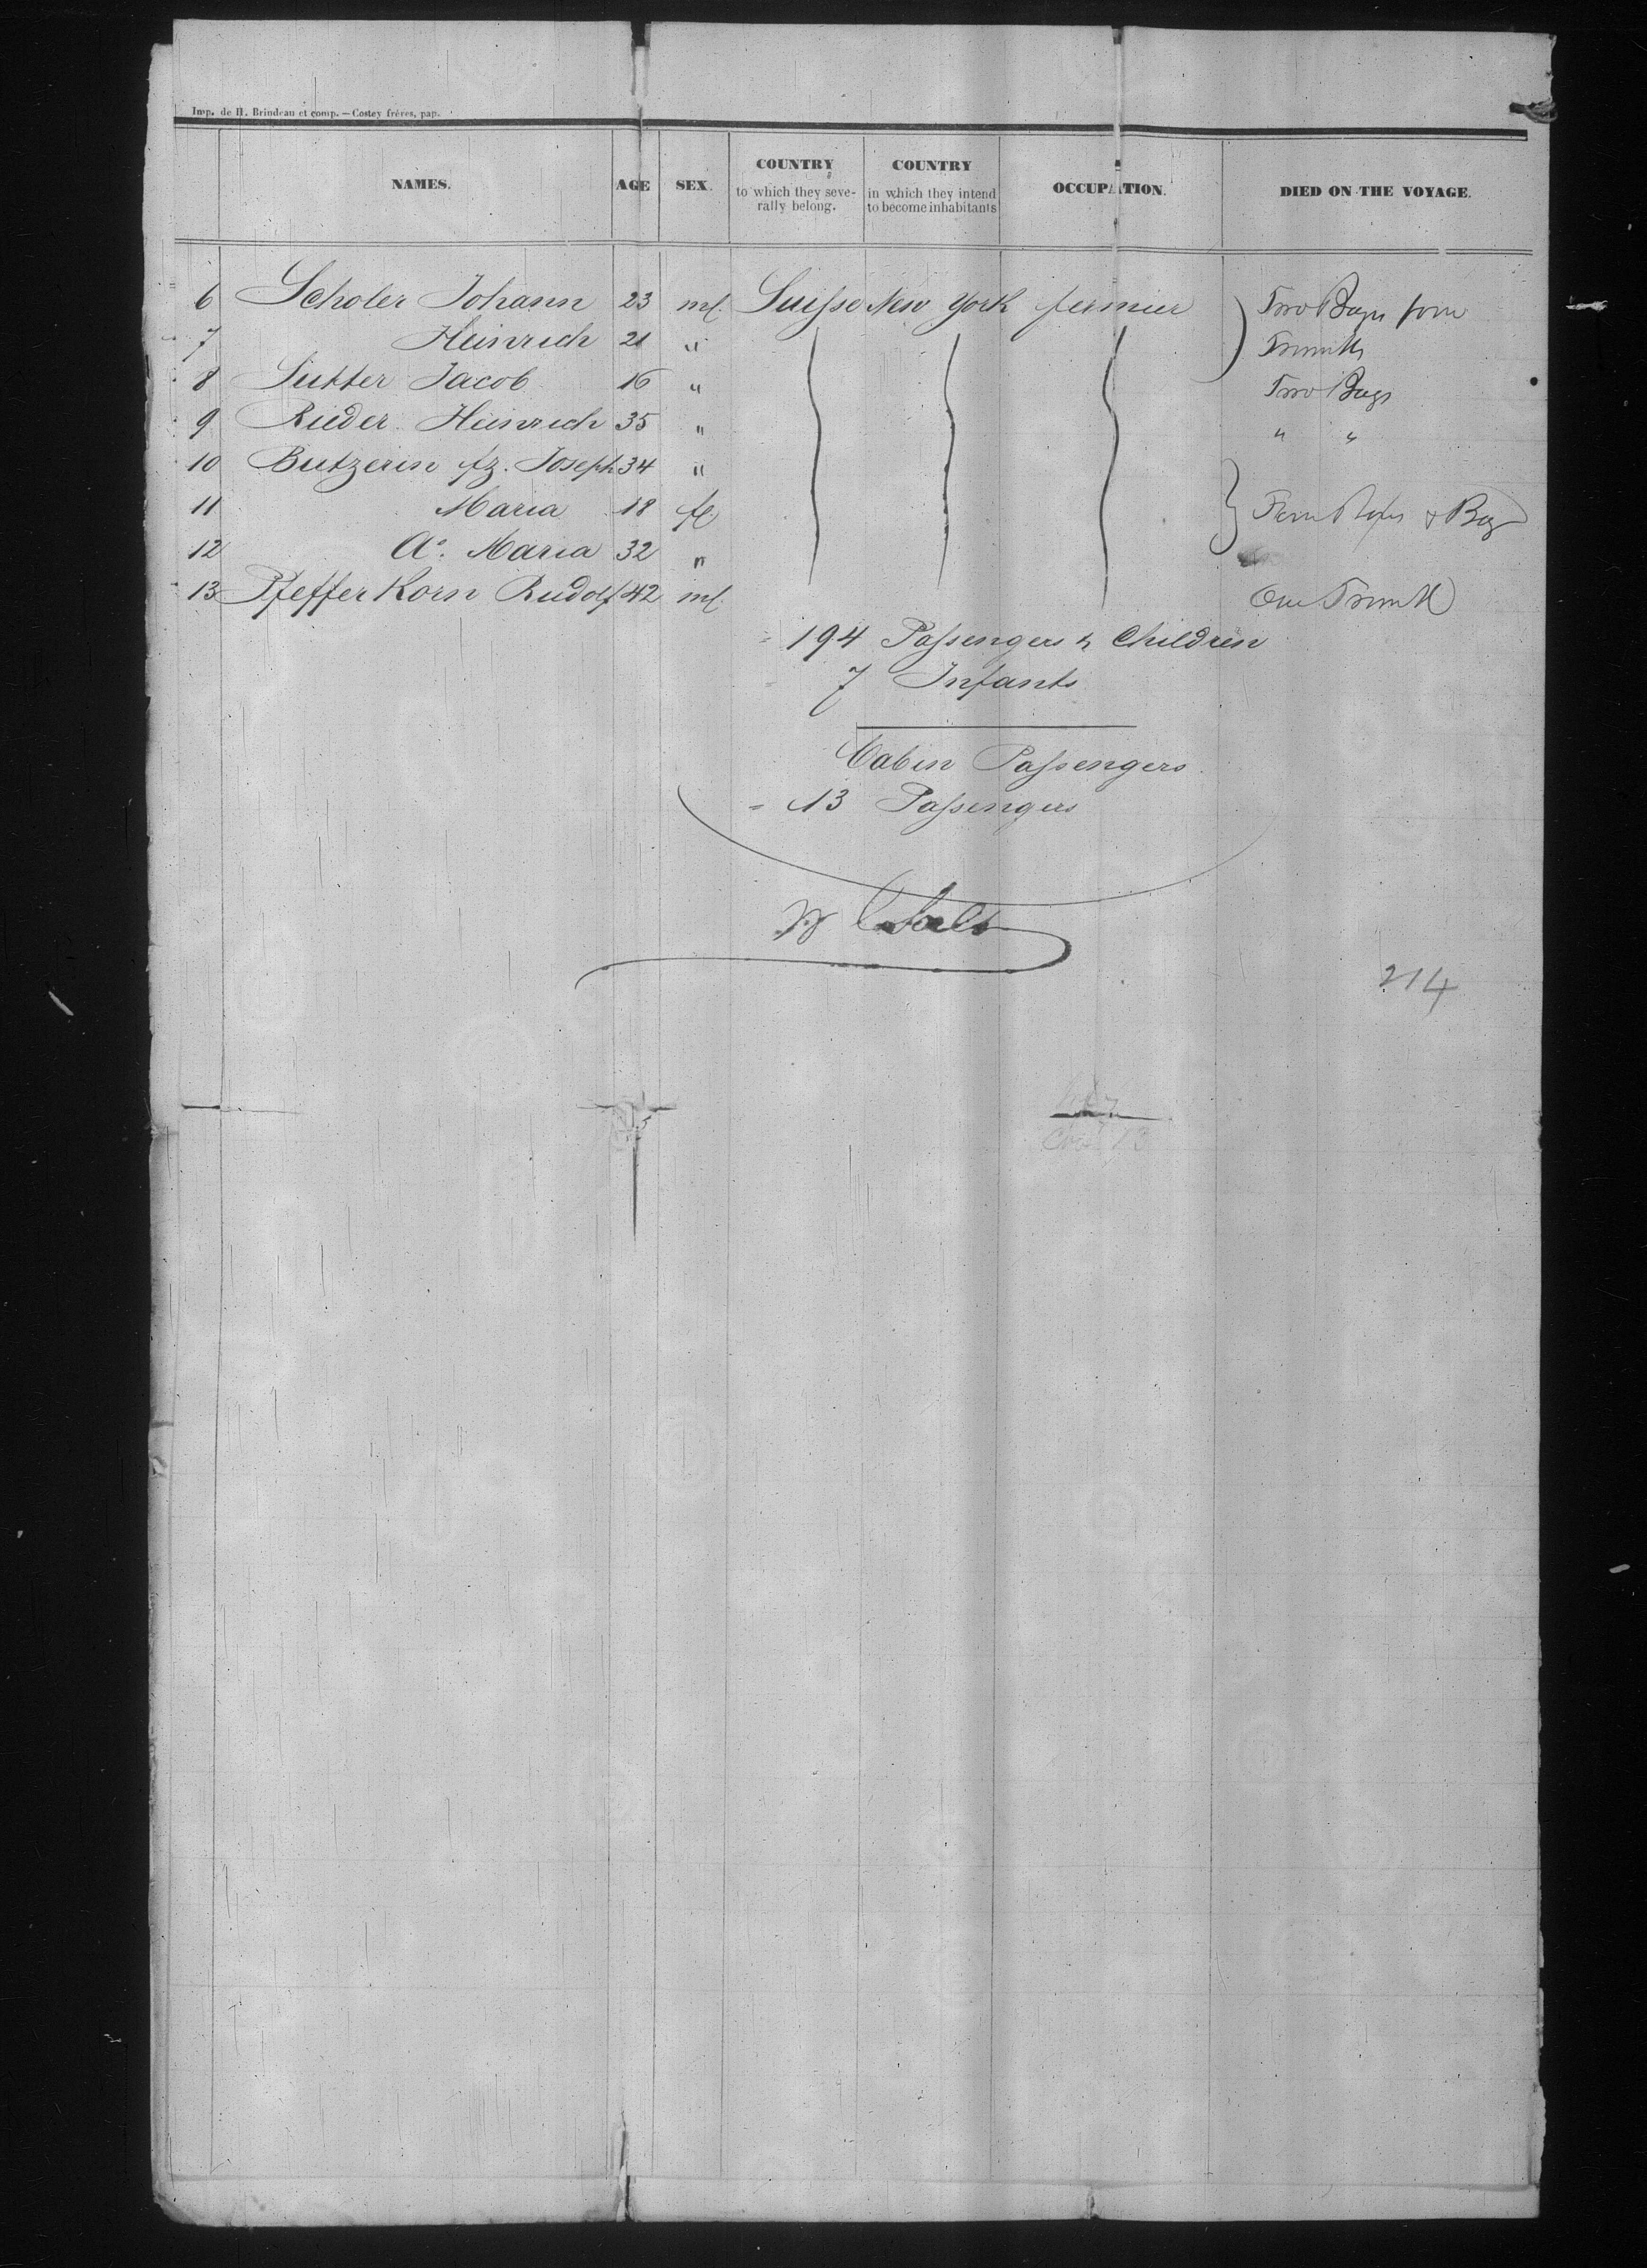 Imp. de H. Brindeau et comp. — Costey frères, pap.
NAMES. AGE SEX. COUNTRY to which they severally belong. COUNTRY in which they intend to become inhabitants OCCUPATION. DIED ON THE VOYAGE.
6 Scholer Johann 23 ml. Suisse New York fermier Two Bags four
7 Heinrich 21 " Trunks
8 Sutter Jacob 16 " Two Bags
9 Rieder Heinrich 35 " " "
10 Butzerin fz. Joseph 34 "
11 Maria 18 fl. & Bag
12 Aa. Maria 32 "
13 Pfefferkorn Rudolf 42 ml. One Trunk
= 194 Passengers & Children
= 7 Infants
Cabin Passengers
= 13 Passengers
214